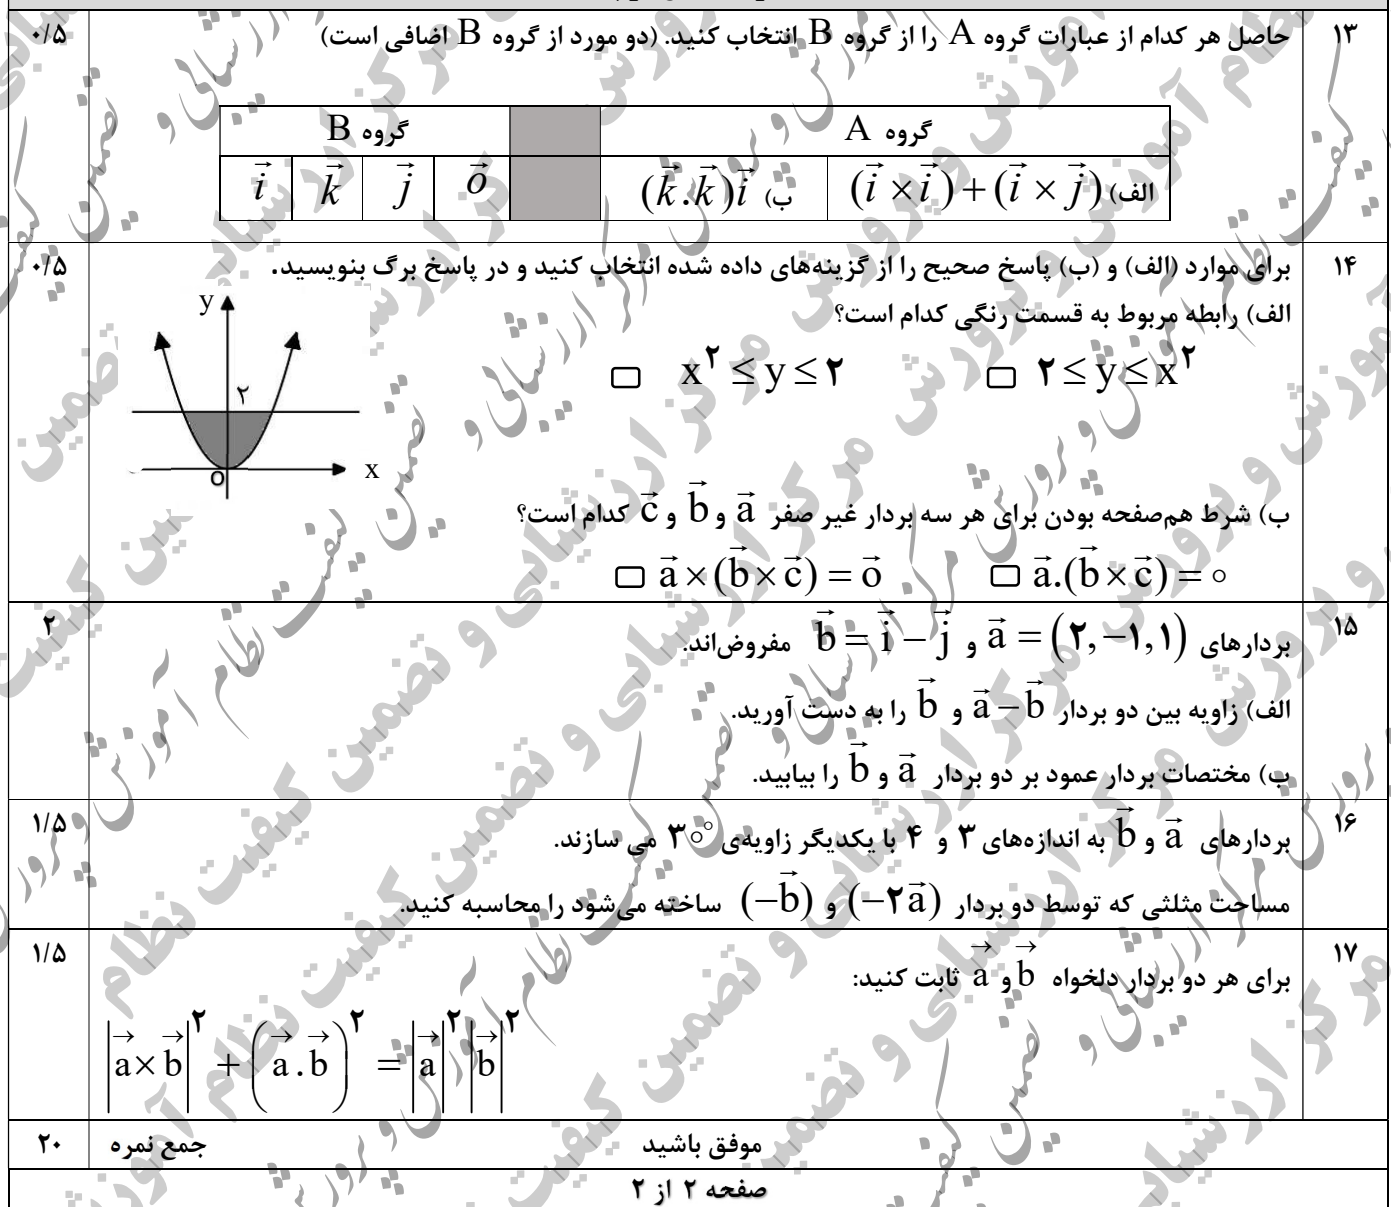 ۱۳ حاصل هر کدام از عبارات گروه A را از گروه B انتخاب کنید. (دو مورد از گروه B اضافی است) ۰/۵
گروه A گروه B
الف) (i⃗ × i⃗) + (i⃗ × j⃗) ب) (k⃗.k⃗)i⃗ o⃗ j⃗ k⃗ i⃗
۱۴ برای موارد (الف) و (ب) پاسخ صحیح را از گزینه‌های داده شده انتخاب کنید و در پاسخ برگ بنویسید. ۰/۵
الف) رابطه مربوط به قسمت رنگی کدام است؟
▭ ۲ ≤ y ≤ x^۲ ▭ x^۲ ≤ y ≤ ۲
y
۲
o x
ب) شرط هم‌صفحه بودن برای هر سه بردار غیر صفر a⃗ و b⃗ و c⃗ کدام است؟
▭ a⃗.(b⃗ × c⃗) = ۰ ▭ a⃗ × (b⃗ × c⃗) = o⃗
۱۵ بردارهای a⃗ = (۲, −۱, ۱) و b⃗ = i⃗ − j⃗ مفروض‌اند. ۲
الف) زاویه بین دو بردار a⃗ − b⃗ و b⃗ را به دست آورید.
ب) مختصات بردار عمود بر دو بردار a⃗ و b⃗ را بیابید.
۱۶ بردارهای a⃗ و b⃗ به اندازه‌های ۳ و ۴ با یکدیگر زاویه‌ی ۳۰° می سازند. ۱/۵
مساحت مثلثی که توسط دو بردار (−۲a⃗) و (−b⃗) ساخته می‌شود را محاسبه کنید.
۱۷ برای هر دو بردار دلخواه b⃗ و a⃗ ثابت کنید: ۱/۵
|a⃗ × b⃗|^۲ + (a⃗ . b⃗)^۲ = |a⃗|^۲ |b⃗|^۲
موفق باشید جمع نمره ۲۰
صفحه ۲ از ۲
مرکز ارزشیابی و تضمین کیفیت نظام آموزش و پرورش